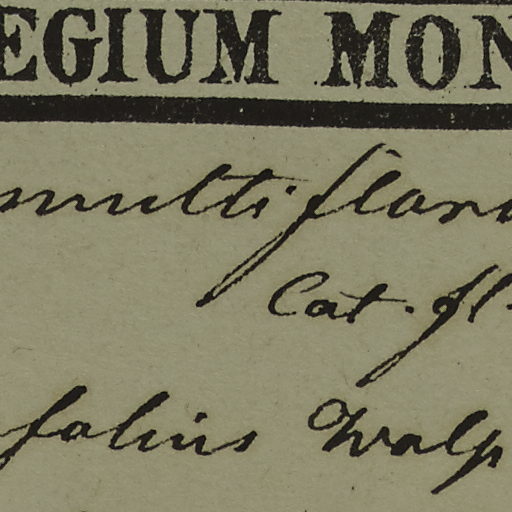 EGIUM MON
multiflora
Cat. fl.
folius Walp